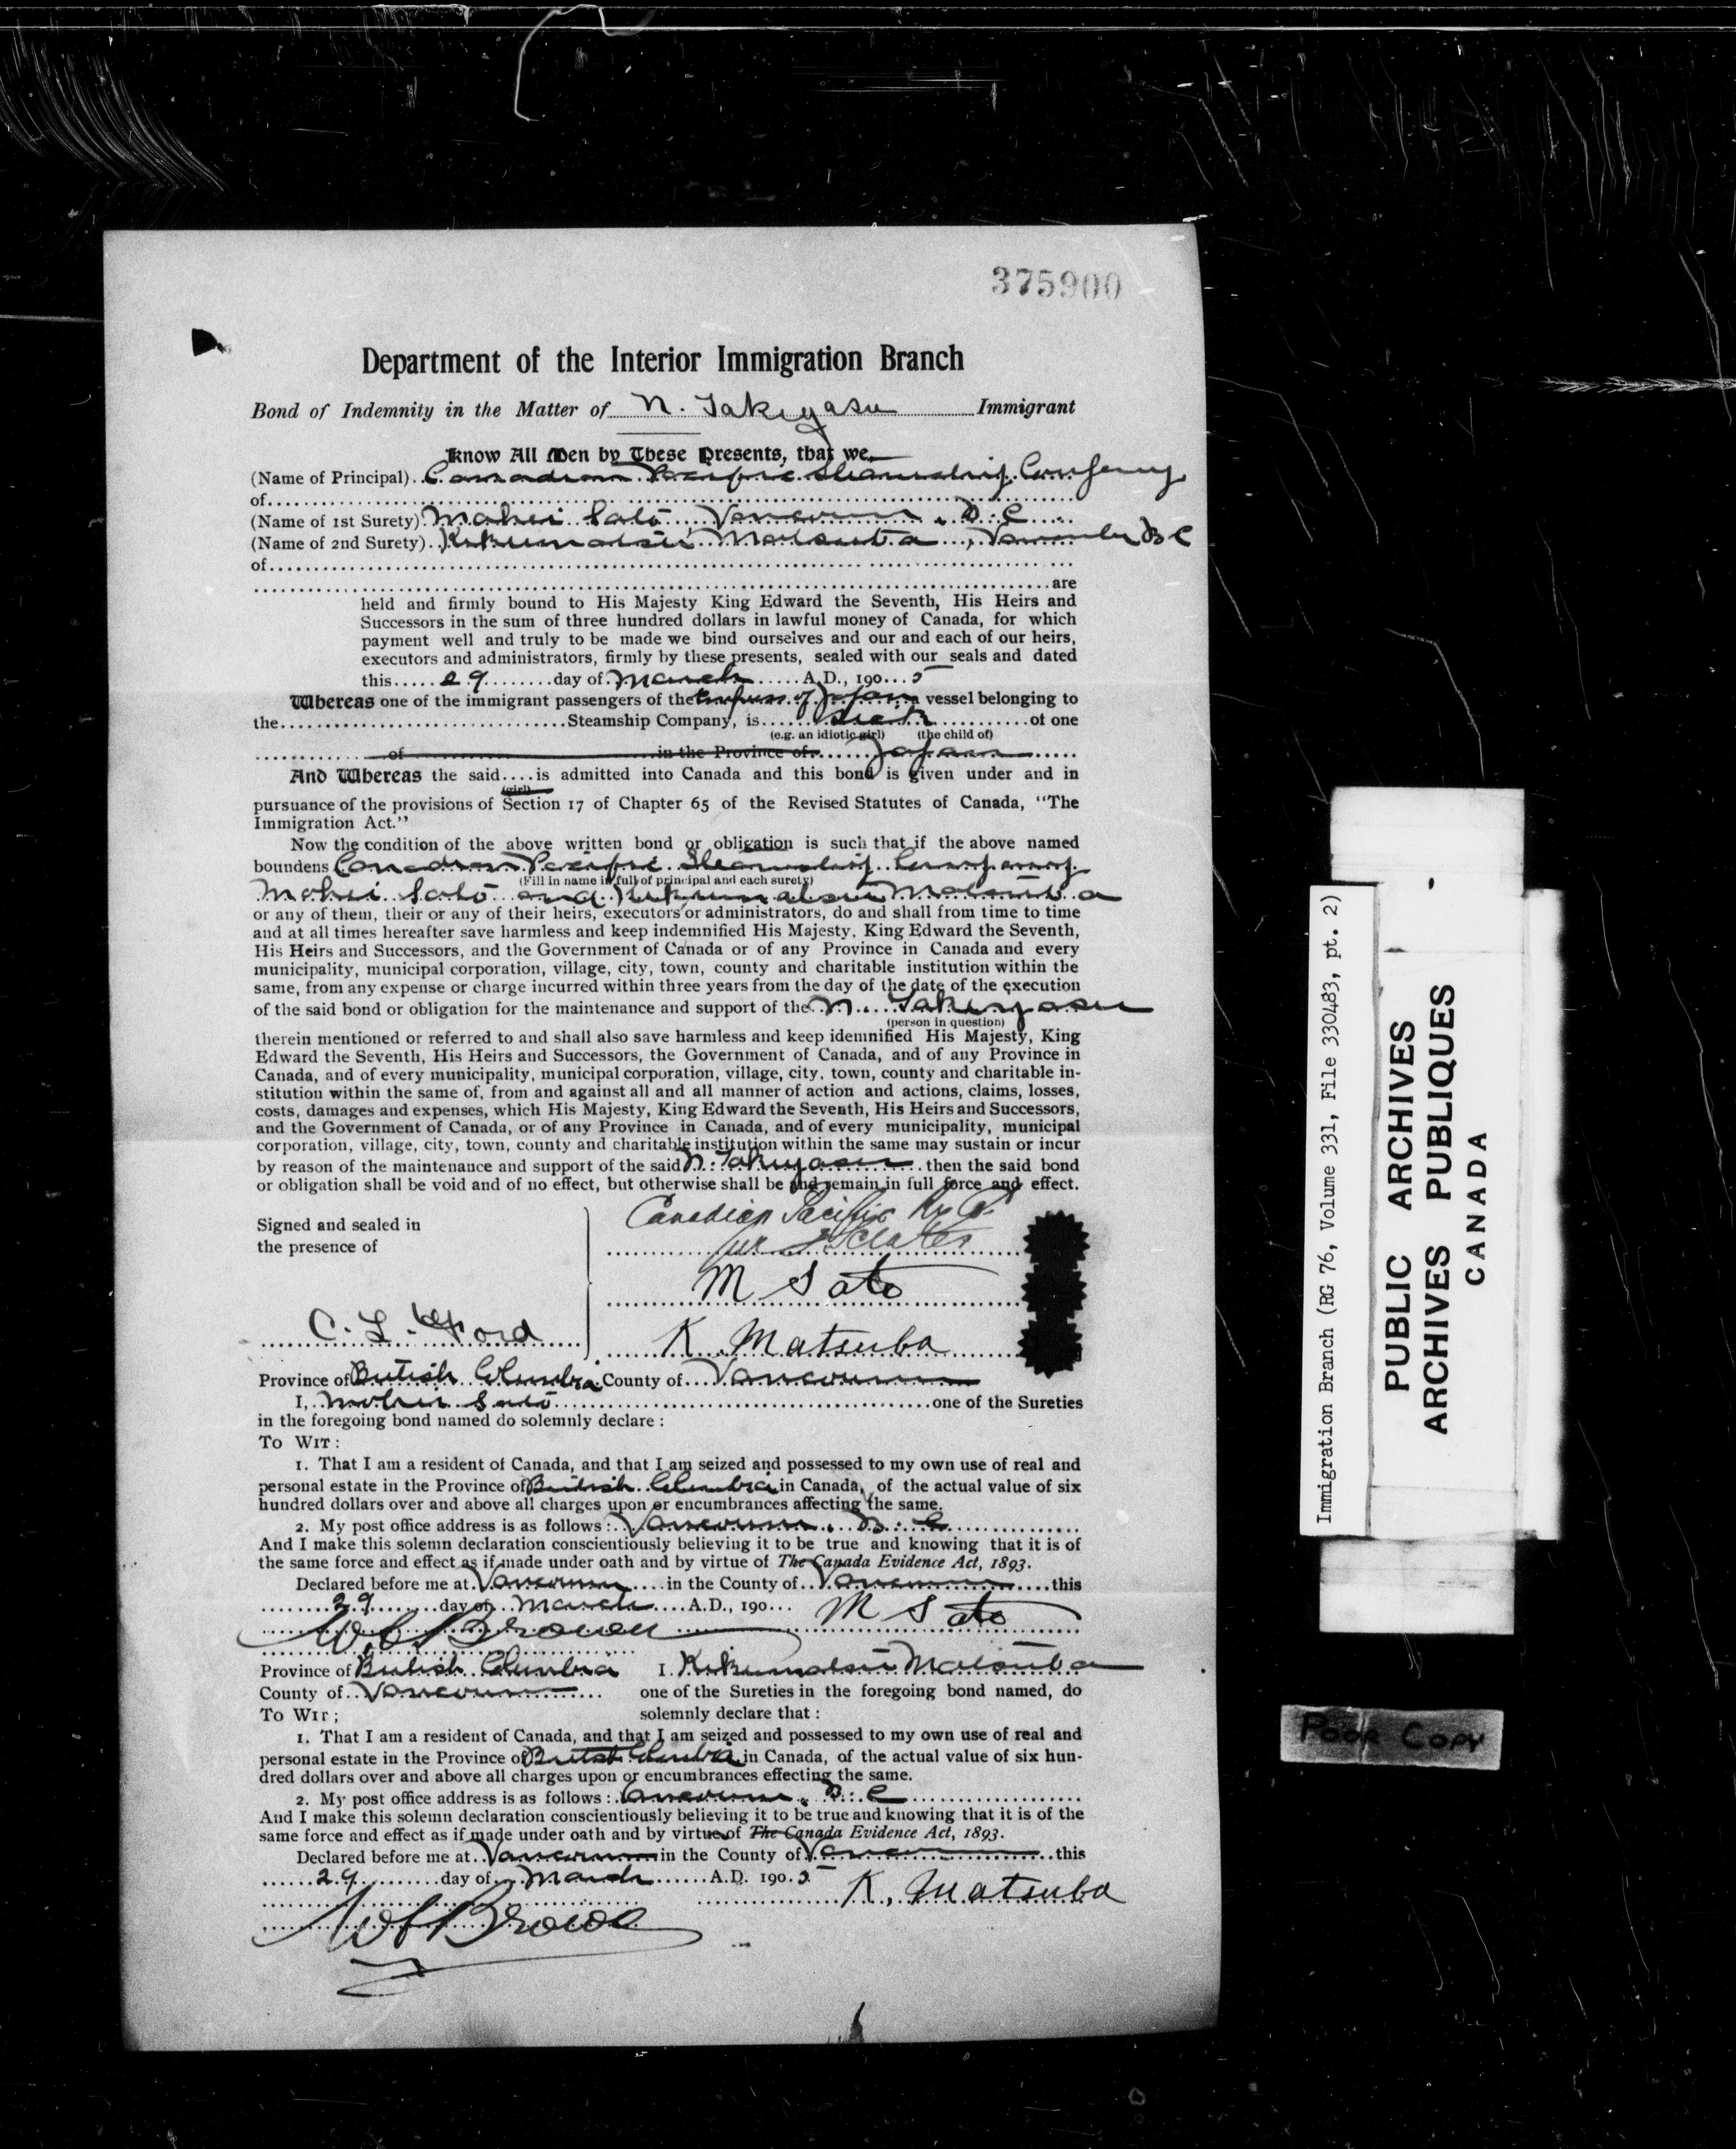 375900
Department of the Interior Immigration Branch
Bond of Indemnity in the Matter of N. Takeyasu Immigrant
Know All Men by These Presents, that we
(Name of Principal) Canadian Pacific Steamship Company
of
(Name of 1st Surety) Mohei Sato, Vancouver, B.C
(Name of 2nd Surety) Kikumatsu Matsuba, Vancouver B C
of
are
held and firmly bound to His Majesty King Edward the Seventh, His Heirs and
Successors in the sum of three hundred dollars in lawful money of Canada, for which
payment well and truly to be made we bind ourselves and our and each of our heirs,
executors and administrators, firmly by these presents, sealed with our seals and dated
this 29 day of March A.D., 190 5
Whereas one of the immigrant passengers of the Empress of Japan a vessel belonging to
the Steamship Company, is sick of one
(e.g. an idiotic girl) (the child of)
of in the Province of Japan
And Whereas the said is admitted into Canada and this bond is given under and in
(girl)
pursuance of the provisions of Section 17 of Chapter 65 of the Revised Statutes of Canada, "The
Immigration Act."
Now the condition of the above written bond or obligation is such that if the above named
boundens Canadian Pacific Steamship Company
(Fill in name in full of principal and each surety)
Mohei Sato and Kikumatsu Matsuba
or any of them, their or any of their heirs, executors or administrators, do and shall from time to time
and at all times hereafter save harmless and keep indemnified His Majesty, King Edward the Seventh,
His Heirs and Successors, and the Government of Canada or of any Province in Canada and every
municipality, municipal corporation, village, city, town, county and charitable institution within the
same, from any expense or charge incurred within three years from the day of the date of the execution
of the said bond or obligation for the maintenance and support of the N. Takeyasu
(person in question)
therein mentioned or referred to and shall also save harmless and keep idemnified His Majesty, King
Edward the Seventh, His Heirs and Successors, the Government of Canada, and of any Province in
Canada, and of every municipality, municipal corporation, village, city, town, county and charitable in-
stitution within the same of, from and against all and all manner of action and actions, claims, losses,
costs, damages and expenses, which His Majesty, King Edward the Seventh, His Heirs and Successors,
and the Government of Canada, or of any Province in Canada, and of every municipality, municipal
corporation, village, city, town, county and charitable institution within the same may sustain or incur
by reason of the maintenance and support of the said N. Takeyasu then the said bond
or obligation shall be void and of no effect, but otherwise shall be and remain in full force and effect.
Canadian Pacific Ry Co
Signed and sealed in
the presence of
M Sato
C. L. Ford
K. Matsuba
Province of British Columbia County of Vancouver
I, Mohei Sato one of the Sureties
in the foregoing bond named do solemnly declare :
To Wit:
1. That I am a resident of Canada, and that I am seized and possessed to my own use of real and
personal estate in the Province of British Columbia in Canada, of the actual value of six
hundred dollars over and above all charges upon or encumbrances affecting the same.
2. My post office address is as follows: Vancouver, B.C
And I make this solemn declaration conscientiously believing it to be true and knowing that it is of
the same force and effect as if made under oath and by virtue of The Canada Evidence Act, 1893.
Declared before me at Vancouver in the County of Vancouver this
29 day of March A.D., 190
M Sato
W.C. Brown
Province of British Columbia I Kikumatsu Matsuba
County of Vancouver one of the Sureties in the foregoing bond named, do
To Wit; solemnly declare that :
1. That I am a resident of Canada, and that I am seized and possessed to my own use of real and
personal estate in the Province of British Columbia in Canada, of the actual value of six hun-
dred dollars over and above all charges upon or encumbrances effecting the same.
2. My post office address is as follows: Vancouver, B.C
And I make this solemn declaration conscientiously believing it to be true and knowing that it is of the
same force and effect as if made under oath and by virtue of The Canada Evidence Act, 1893.
Declared before me at Vancouver in the County of Vancouver this
29 day of March A.D. 190 5
K. Matsuba
Brown
Immigration Branch (RG 76, Volume 331, File 330483, pt. 2)
PUBLIC ARCHIVES
ARCHIVES PUBLIQUES
CANADA
Poor Copy